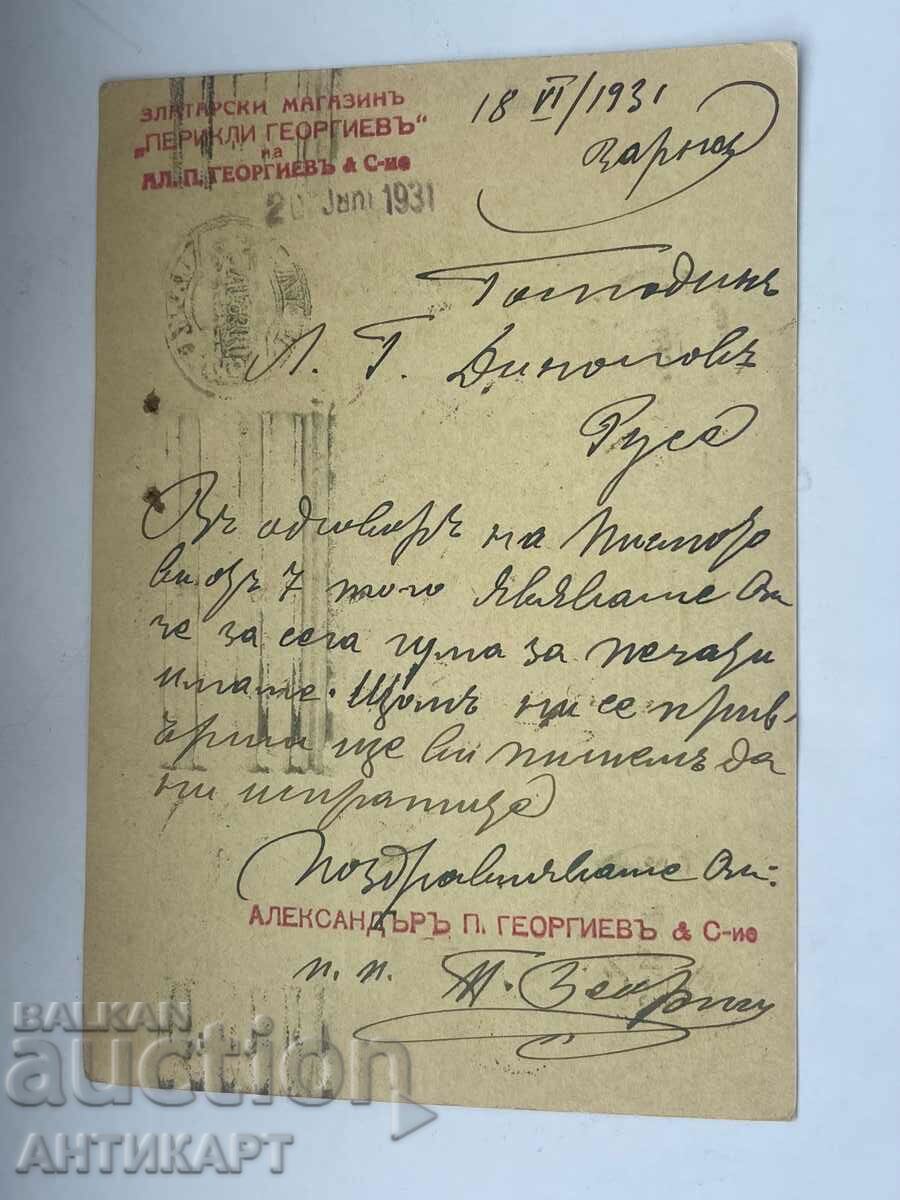 ЗЛАТАРСКИ МАГАЗИНЪ
„ПЕРИКЛИ ГЕОРГИЕВЪ“
на
АЛ. П. ГЕОРГИЕВЪ & С-ие
1931
18 VI/1931
Варна
Господинъ
Л. Г. Диноловъ
Русе
Въ одговоръ на писмото
ви отъ 7 того явяваме Ви
че за сега гума за печати
имаме. Щомъ ни се прив-
ърши ще ви пишемъ да
ни испратите
Поздравляваме Ви:
АЛЕКСАНДЪРЪ П. ГЕОРГИЕВЪ & С-ие
п. п.
BALKAN
auction
АНТИКАРТ